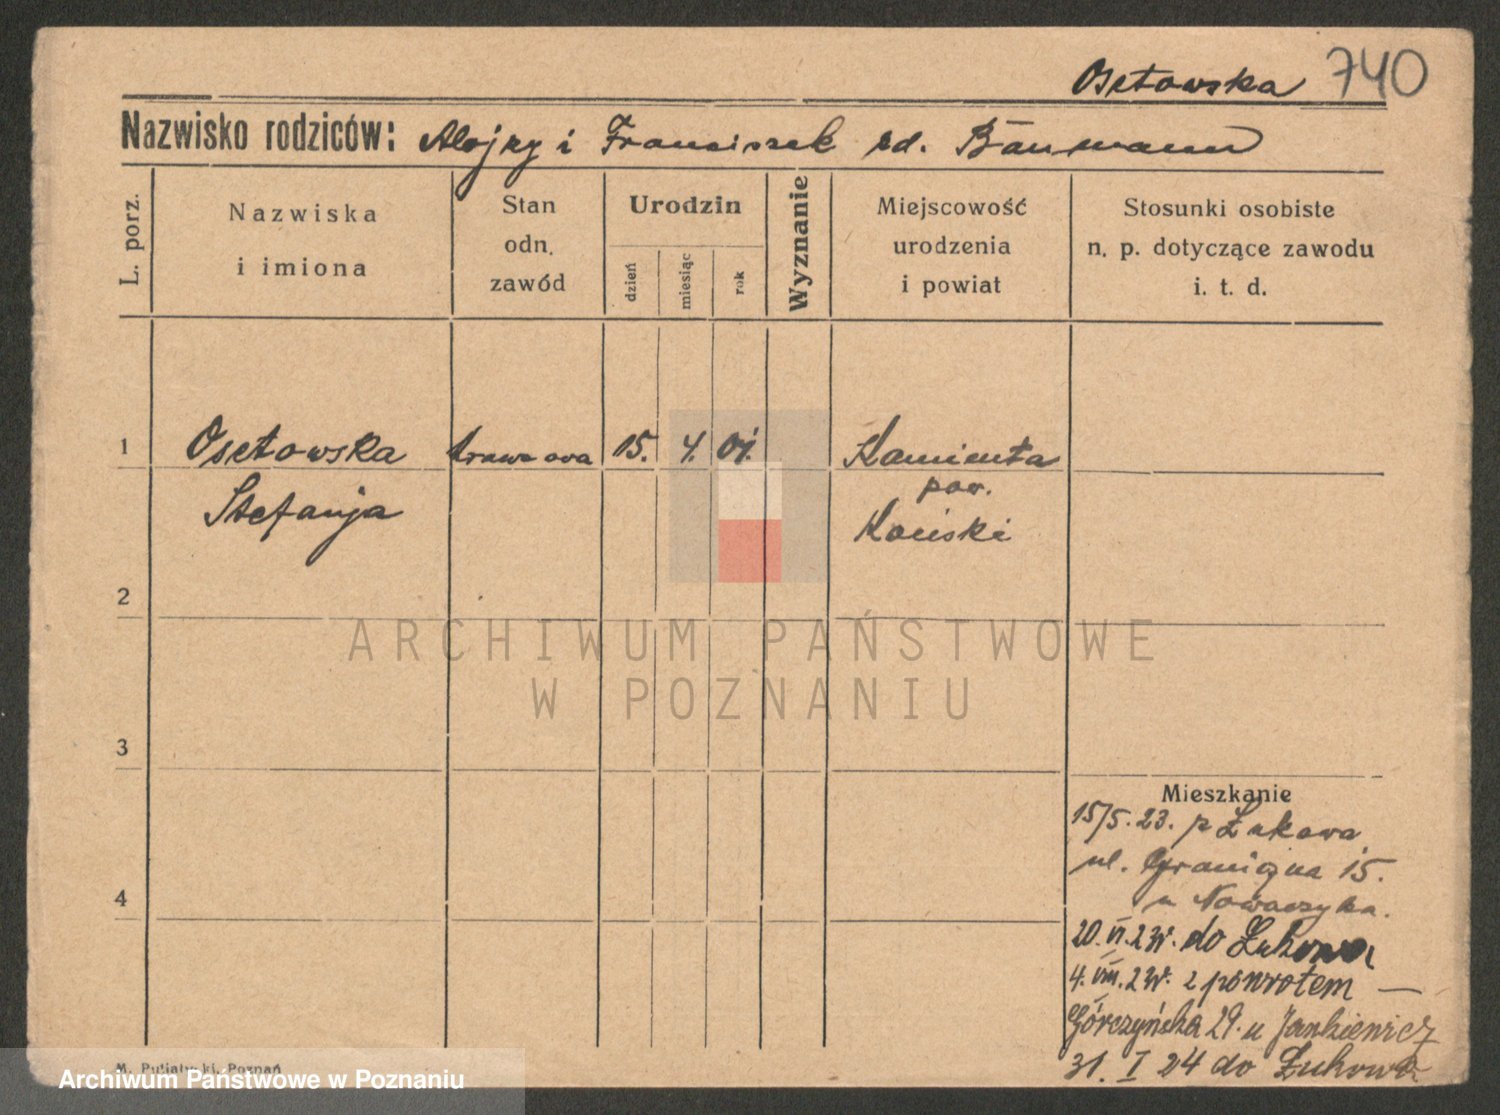 Osetowska 740
Nazwisko rodziców: Alojzy i Franciszek rd. Baumann
L. porz.
Nazwiska
i imiona
Stan
odn.
zawód
Urodzin
dzień
miesiąc
rok
Wyznanie
Miejscowość
urodzenia
i powiat
Stosunki osobiste
n. p. dotyczące zawodu
i. t. d.
1
Osetowska
Stefanja
15. 4. 01.
Kamienta
pow.
Koński
2
3
4
Mieszkanie
15/5. 23. z Żukowa
ul. Graniczna 15.
u Nowaczyka.
20. VI. 23r. do Żukowa
4. VIII. 23r. z powrotem —
Górczyńska 29. u Jankiewicz
31. I 24 do Żukowa
M. Putiatycki, Poznań
ARCHIWUM PAŃSTWOWE
W POZNANIU
Archiwum Państwowe w Poznaniu